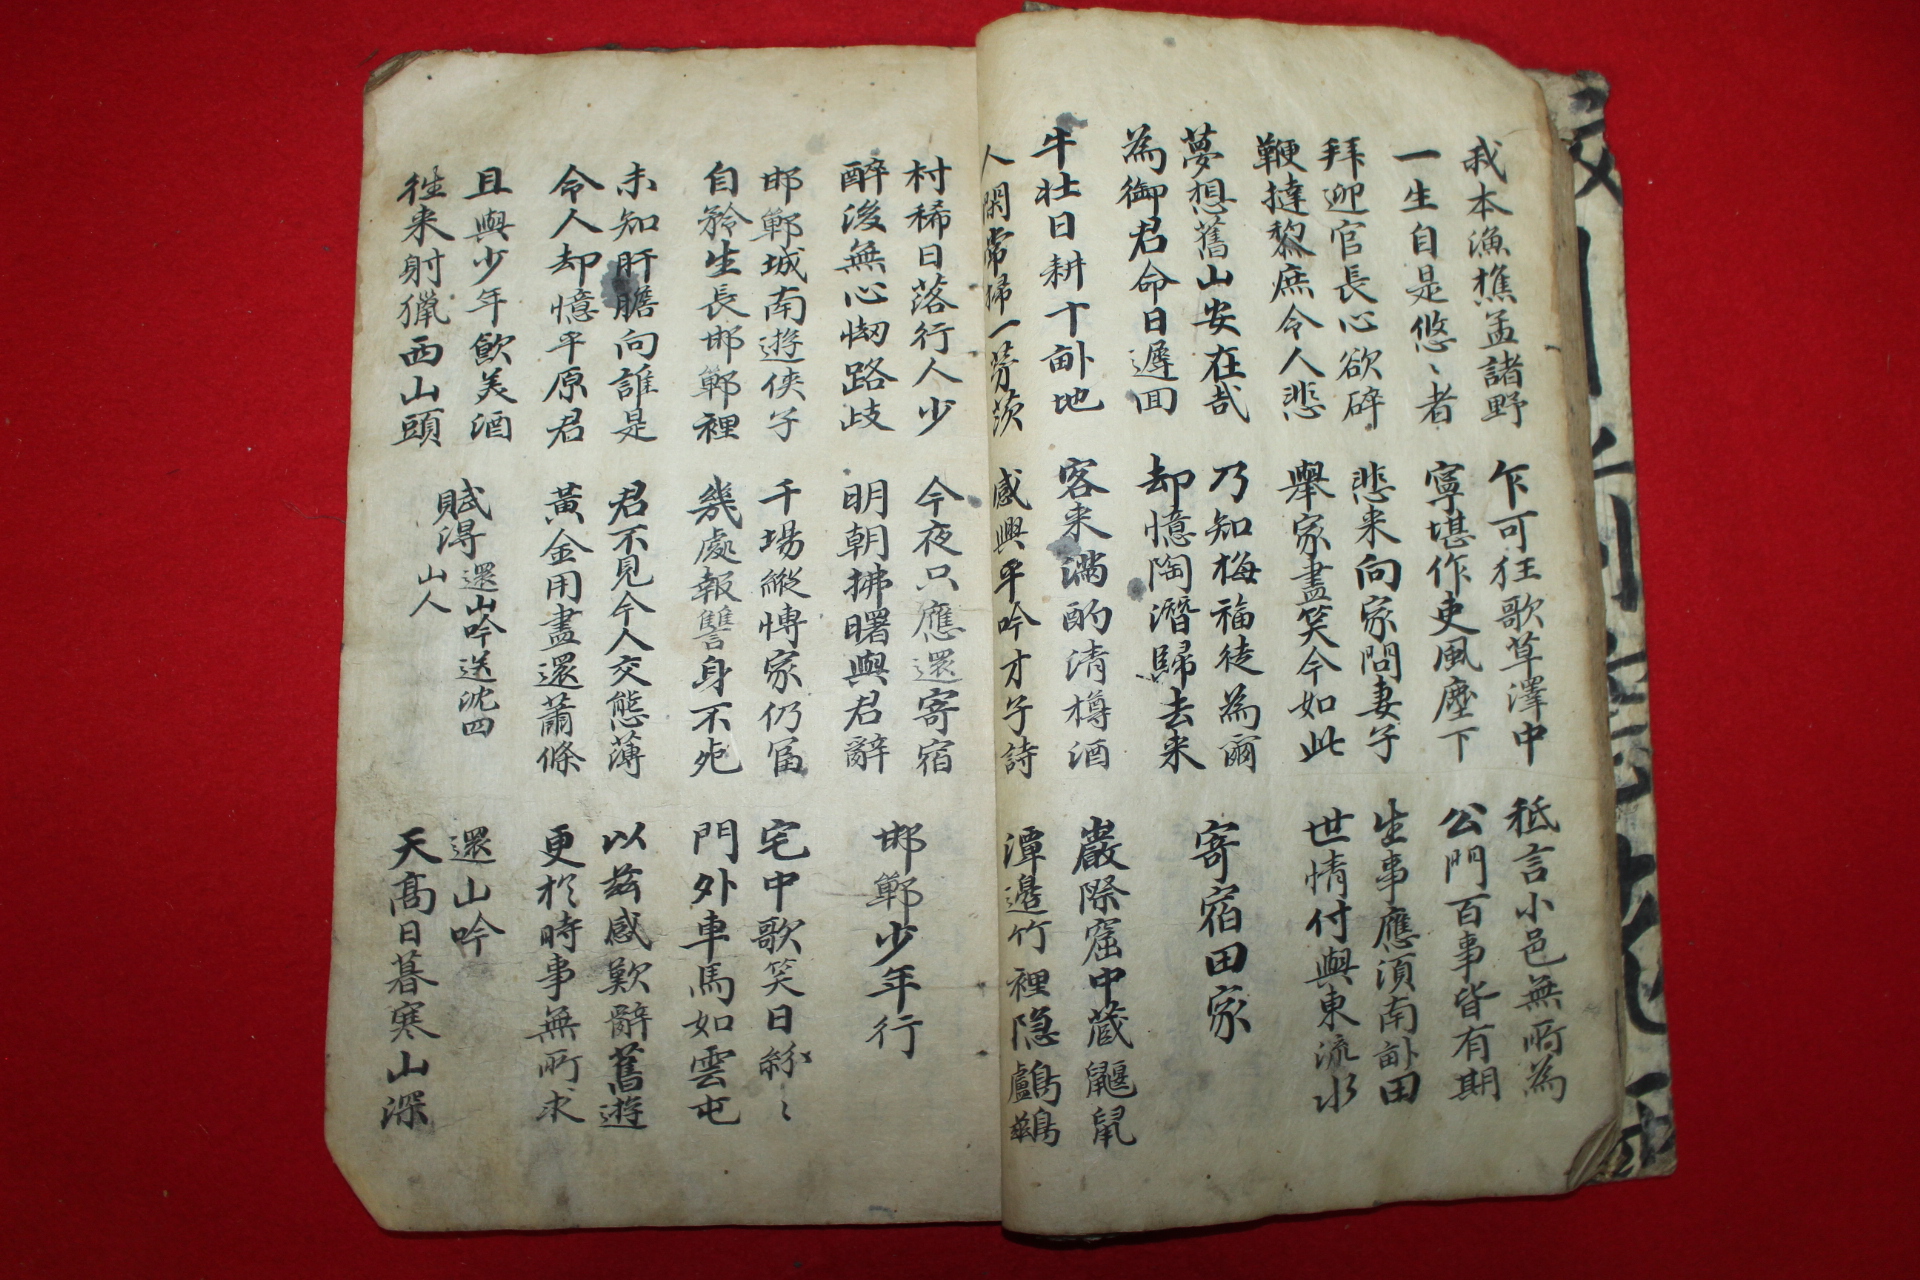 我本漁樵孟諸野
一生自是悠〻者
乍可狂歌草澤中
寧堪作吏風塵下
秪言小邑無所為
公門百事皆有期
拜迎官長心欲碎
鞭撻黎庶令人悲
悲来向家問妻子
舉家盡笑今如此
生事應須南畝田
世情付與東流水
夢想舊山安在哉
為御君命日遲回
乃知梅福徒為爾
却憶陶潛歸去来
寄宿田家
牛壯日耕十畝地
人閑常掃一茅茨
客来滿酌清樽酒
感興平吟才子詩
巖際窟中蔵鼴鼠
潭邊竹裡隐鸕鶿
村稀日落行人少
醉後無心㤼路歧
今夜只應還寄宿
明朝拂曙與君辭
邯鄲少年行
邯鄲城南遊俠子
自矜生長邯鄲裡
千場縱愽家仍富
幾處報讐身不死
宅中歌笑日紛〻
門外車馬如雲屯
未知肝膽向誰是
令人却憶平原君
君不見今人交態薄
黃金用盡還蕭條
以兹感歎辭舊遊
更於時事無所求
且與少年飲美酒
徃来射獵西山頭
賦得還山吟送沈四
山人
還山吟
天高日暮寒山深